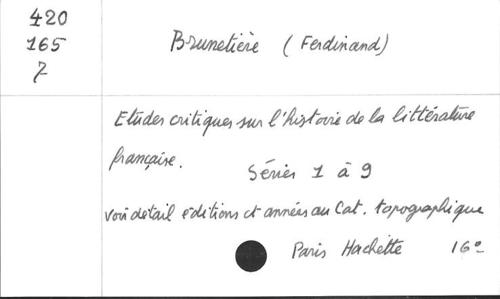 420
165
7
Brunetière (Ferdinand)
Etudes critiques sur l'histoire de la littérature
française.
Séries 1 à 9
voir detail editions et années au Cat. topographique
Paris Hachette 16º